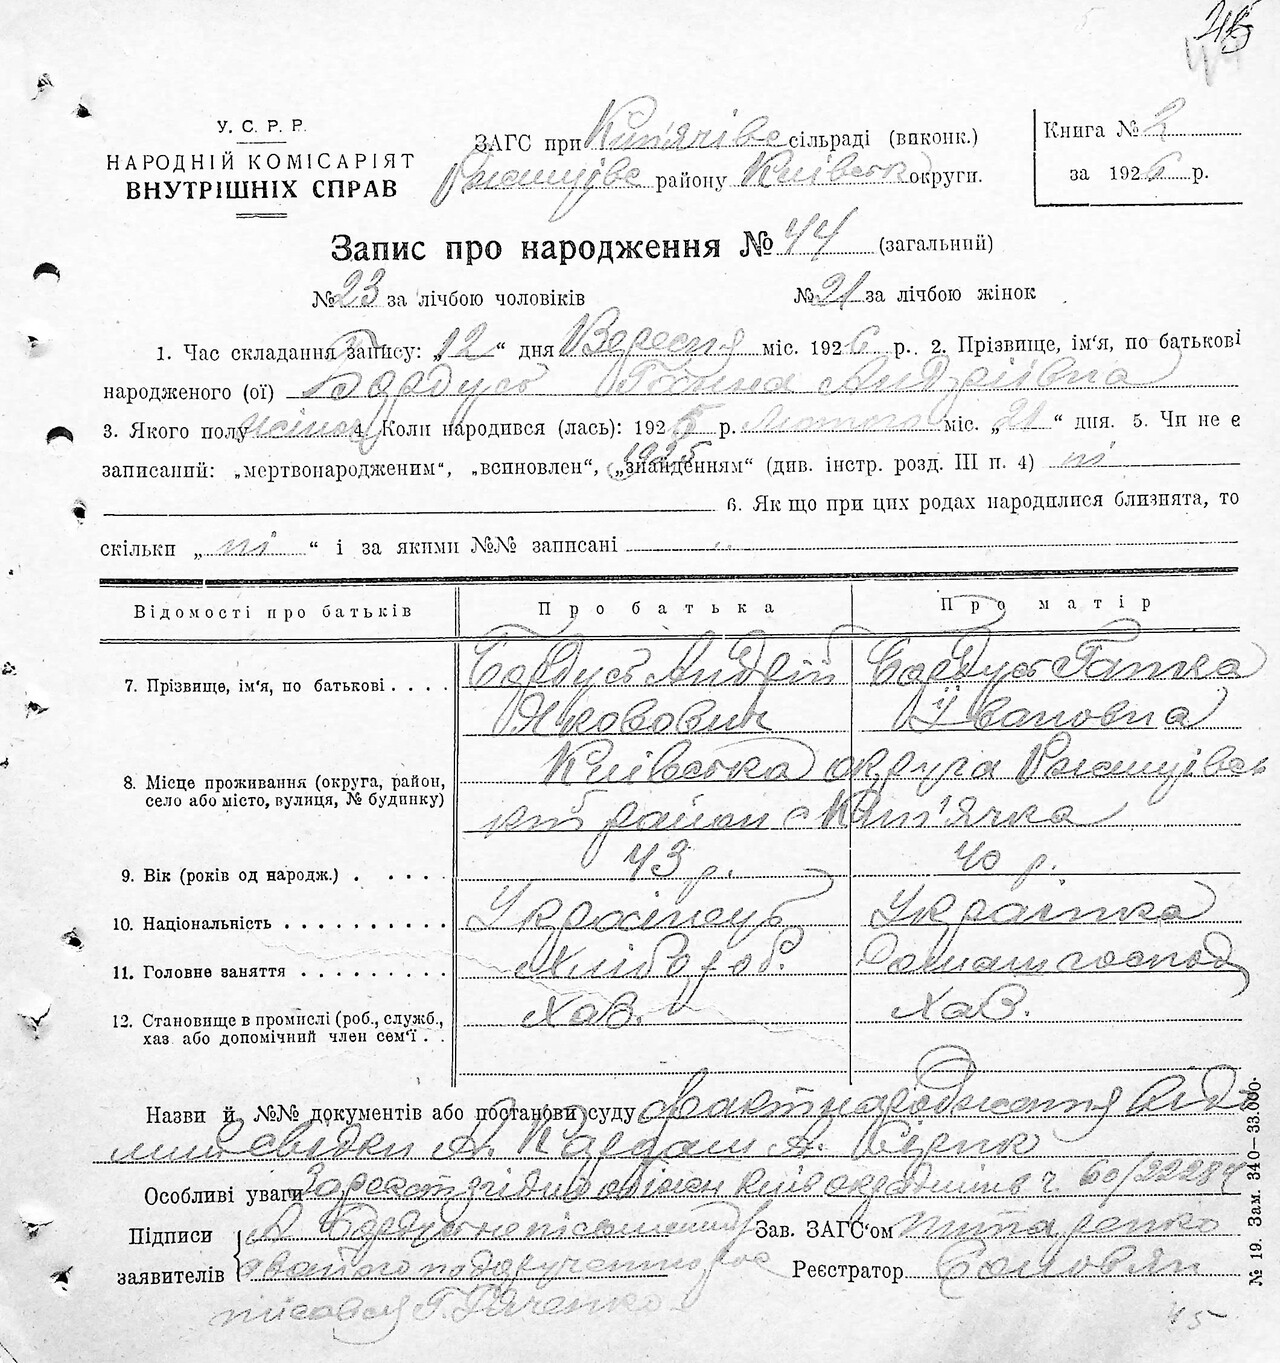 45
У. С. Р. Р.
НАРОДНІЙ КОМІСАРІЯТ
ВНУТРІШНІХ СПРАВ
ЗАГС при Кип'ячівс сільраді (виконк.)
Ржищівс району Київськ округи.
Книга № 2
за 1926 р.
Запис про народження № 44 (загальний)
№ 23 за лічбою чоловіків № 21 за лічбою жінок
1. Час складання запису: „12“ дня Вересня міс. 1926 р. 2. Прізвище, ім'я, по батькові
народженого (ої) Бардусь Ганна Андріївна
3. Якого полу жіноч 4. Коли народився (лась): 1925 р. Лютого міс. „21“ дня. 5. Чи не є
1925
записаний: „мертвонародженим“, „всиновлен“, „знайденням“ (див. інстр. розд. III п. 4) ні
6. Як що при цих родах народилися близнята, то
скільки „ні“ і за якими №№ записані
Відомості про батьків Про батька Про матір
7. Прізвище, ім'я, по батькові . . . . Бардусь Андрій Бардусь Ганна
Якович Івановна
8. Місце проживання (округа, район, село або місто, вулиця, № будинку) Київська округа Ржищівсь
кий район с Кип'ячка
9. Вік (років од народж.) . . . . . 43 р. 40 р.
10. Національність . . . . . . . . . . Українець Українка
11. Головне заняття . . . . . . . . . Хлібороб. Домашн господ
12. Становище в промислі (роб., служб., хаз або допомічний член сем'ї . . ХаВ. ХаВ.
Назви й №№ документів або постанови суду факт народження відо
мий свідки А. Кардаш А.
Особливі уваги Зареєстр згідно обіжн Київ окрадмінв ч. 60/22284
Підписи заявителів А Бардусь неписьменний
Зав. ЗАГС'ом Титаренко
а за його подорученню рос
Реєстратор Соловян
писався Г.
45
№ 19. Зам. 340—33.000.